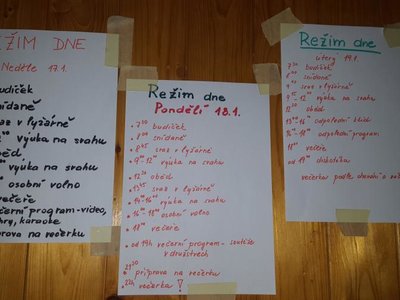 EŽIM DNE
Neděle 17.1.
udíček
nídaně
sraz v lyžárně
výuka na svahu
oběd
výuka na svahu
osobní volno
večeře
ečerní program - video,
hry, karaoke
íprava na večerku
Režim dne
Pondělí 18.1.
7³⁰ budíček
8⁰⁰ snídaně
8⁴⁵ sraz v lyžárně
9⁰⁰-12⁰⁰ výuka na svahu
12³⁰ oběd
13⁴⁵ sraz v lyžárně
14⁰⁰-16⁰⁰ výuka na svahu
16⁰⁰-18⁰⁰ osobní volno
18⁰⁰ večeře
od 19h večerní program - soutěže
v družstvech
21³⁰ příprava na večerku
22h večerka !
Režim dne
úterý 19.1.
7³⁰ budíček
8⁰⁰ snídaně
sraz v lyžárně
výuka na svahu
12³⁰ oběd
odpolední klid
odpolední program
18⁰⁰ večeře
od 19⁰⁰ diskotéka
večerka podle